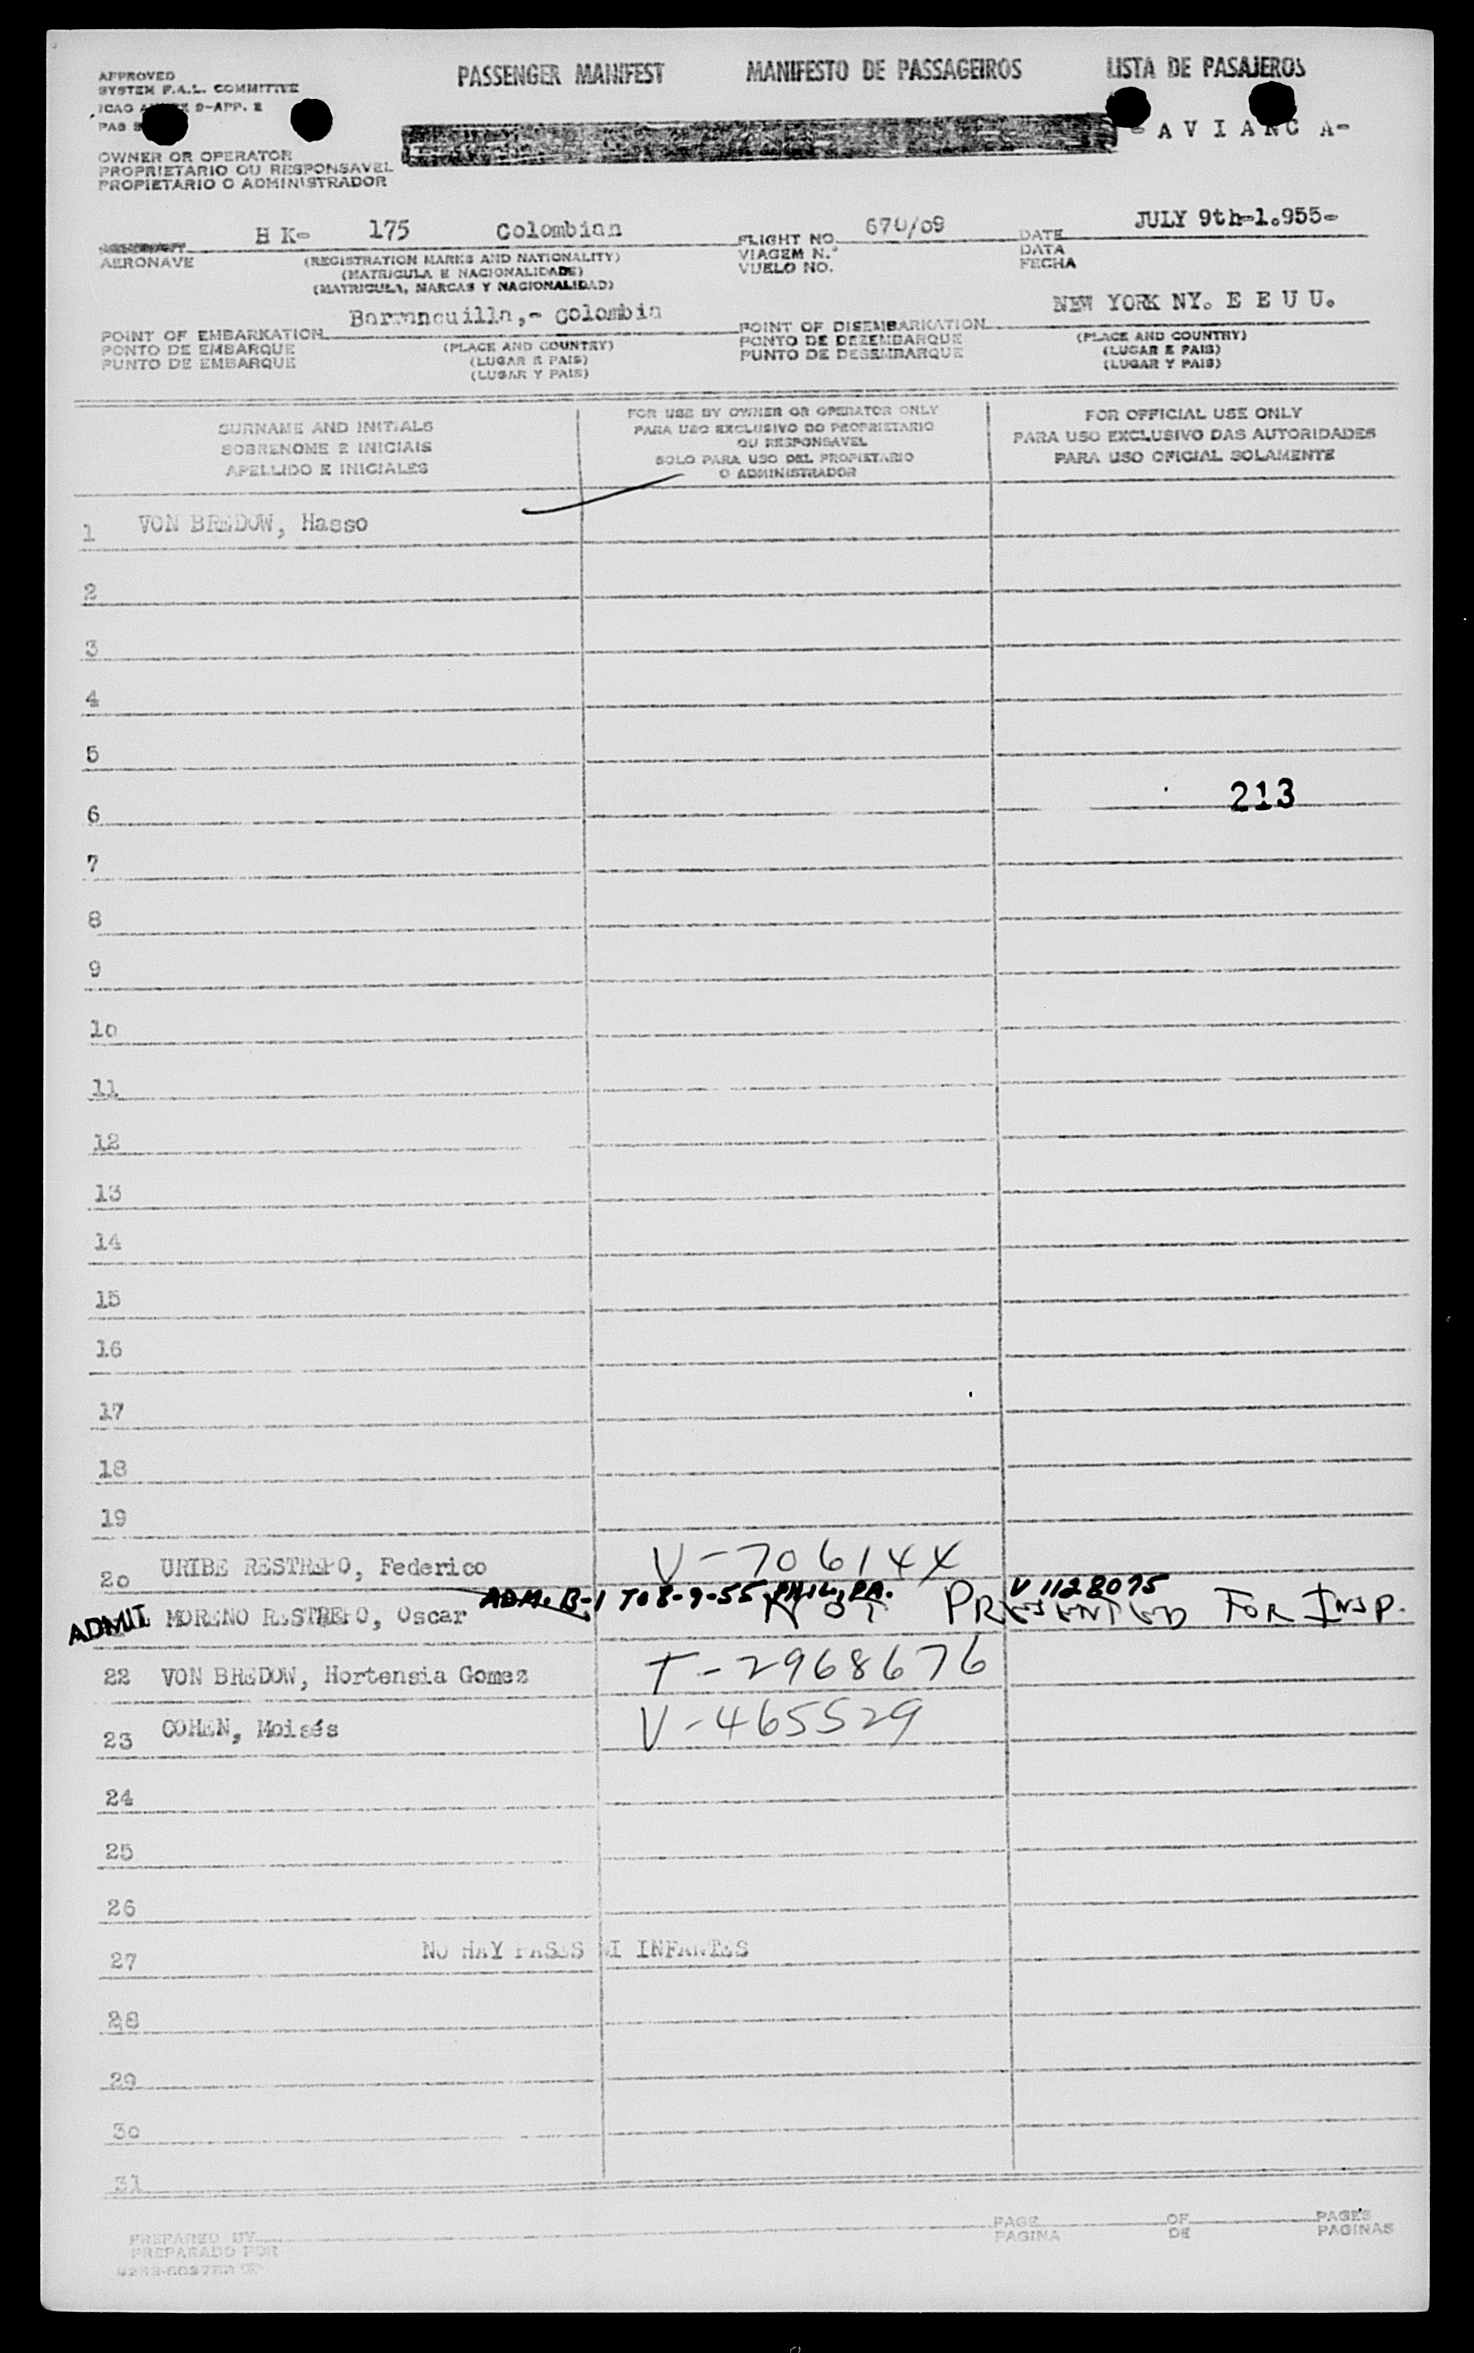 APPROVED
SYSTEM F.A.L. COMMITTEE
ICAO 9-APP. 2
PAS
PASSENGER MANIFEST MANIFESTO DE PASSAGEIROS LISTA DE PASAJEROS
- A V I A N C A-
OWNER OR OPERATOR
PROPRIETARIO OU RESPONSAVEL
PROPIETARIO O ADMINISTRADOR
H K- 175 Colombian
AERONAVE
(REGISTRATION MARKS AND NATIONALITY)
(MATRICULA E NACIONALIDADE)
(MATRICULA, MARCAS Y NACIONALIDAD)
FLIGHT NO. 670/09
VIAGEM N.º
VUELO NO.
DATE JULY 9th-1.955-
DATA
FECHA
POINT OF EMBARKATION Barranquilla,- Colombia
PONTO DE EMBARQUE
PUNTO DE EMBARQUE
(PLACE AND COUNTRY)
(LUGAR E PAIS)
(LUGAR Y PAIS)
POINT OF DISEMBARKATION NEW YORK NY. E E U U.
PONTO DE DEZEMBARQUE
PUNTO DE DESEMBARQUE
(PLACE AND COUNTRY)
(LUGAR E PAIS)
(LUGAR Y PAIS)
SURNAME AND INITIALS
SOBRENOME E INICIAIS
APELLIDO E INICIALES
FOR USE BY OWNER OR OPERATOR ONLY
PARA USO EXCLUSIVO DO PROPRIETARIO
OU RESPONSAVEL
SOLO PARA USO DEL PROPIETARIO
O ADMINISTRADOR
FOR OFFICIAL USE ONLY
PARA USO EXCLUSIVO DAS AUTORIDADES
PARA USO OFICIAL SOLAMENTE
1 VON BREDOW, Hasso
2
3
4
5
213
6
7
8
9
10
11
12
13
14
15
16
17
18
19
20 URIBE RESTREPO, Federico V-706144
ADM. B-1 TO 8-9-55 PHIL, PA. V 1128075
ADMIT MORENO RESTREPO, Oscar NOT PRESENTED FOR INSP.
22 VON BREDOW, Hortensia Gomez T-2968676
23 COHEN, Moisés V-465529
24
25
26
27 NO HAY PASES NI INFANTES
28
29
30
31
PREPARED BY
PREPARADO POR
PAGE OF PAGES
PAGINA DE PAGINAS